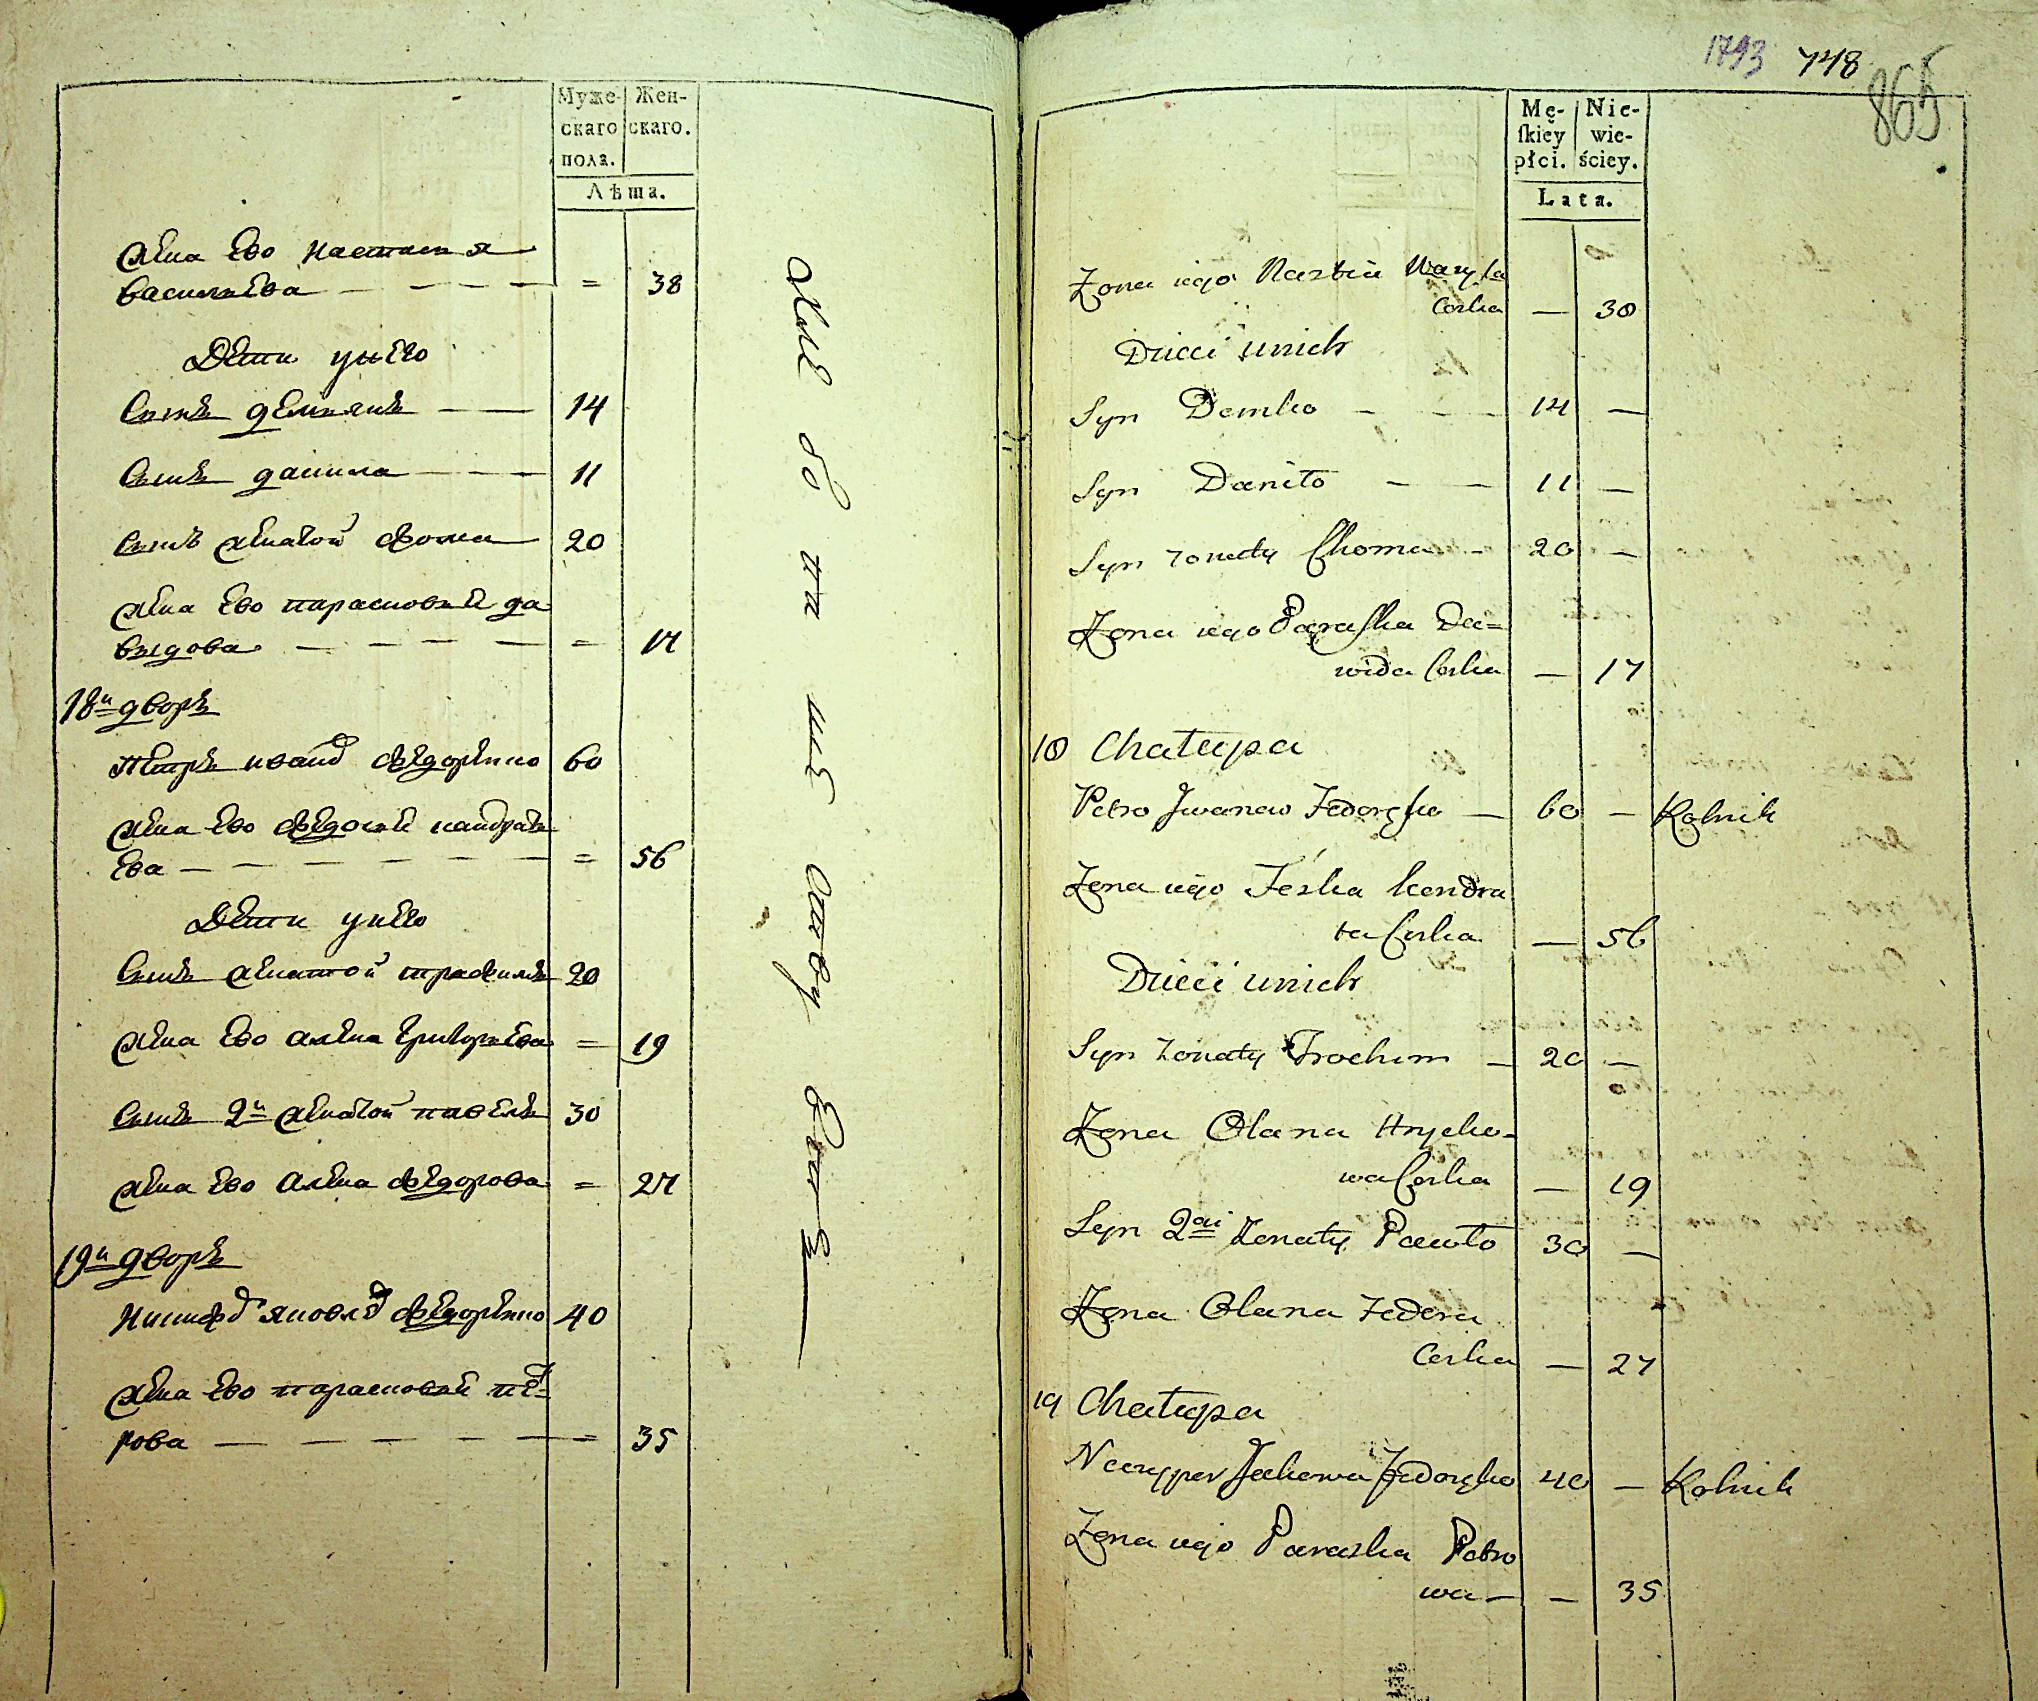 Муже-
скаго
пола.
Жен-
скаго.
Лѣта.
Жена Ево Настасья
васильева — — — — = 38
Дети унего
Сынъ демьянъ — — 14
Сынъ данила — — 11
Сынъ женатой фома 20
Жена Ево парасковья да
выдова — — — — = 17
18й дворъ
Петръ иванов федоренко 60
Жена Ево федосья кандрать
Ева — — — — — = 56
Дети унего
Сынъ женатой трофимъ 20
Жена Ево алена григорьева = 19
Сынъ 2й женатой павелъ 30
Жена Ево Алена федорова = 27
19й дворъ
Никифор яковлев федоренко 40
Жена Ево парасковья пет-
рова — — — — — = 35
1793 748
865
Mę-
ſkiey
płci.
Nie-
wie-
ściey.
Lata.
Zona iego Nastia Wasyla
Corka — 38
Dzieci unich
Syn Demko — — — 14 —
Syn Daniło — — 11 —
Syn zonaty Choma — 20 —
Zona iego Paraſka Da=
wida Corka — 17
18 Chałupa
Petro Iwanow Fedoręko — 60 — Rolnik
Zona iego Feśka Kondra
ta Corka — 56
Dzieci unich
Syn zonaty Trochim — 20 —
Zona Olana Hryćko-
wa Corka — 19
Syn 2gi Zonaty Pawło 30 —
Zona Olana Fedora
Corka — 27
19 Chałupa
Neczyper Jakowa Fedoręko 40 — Rolnik
Zona iego Paraska Petro
wa — — 35